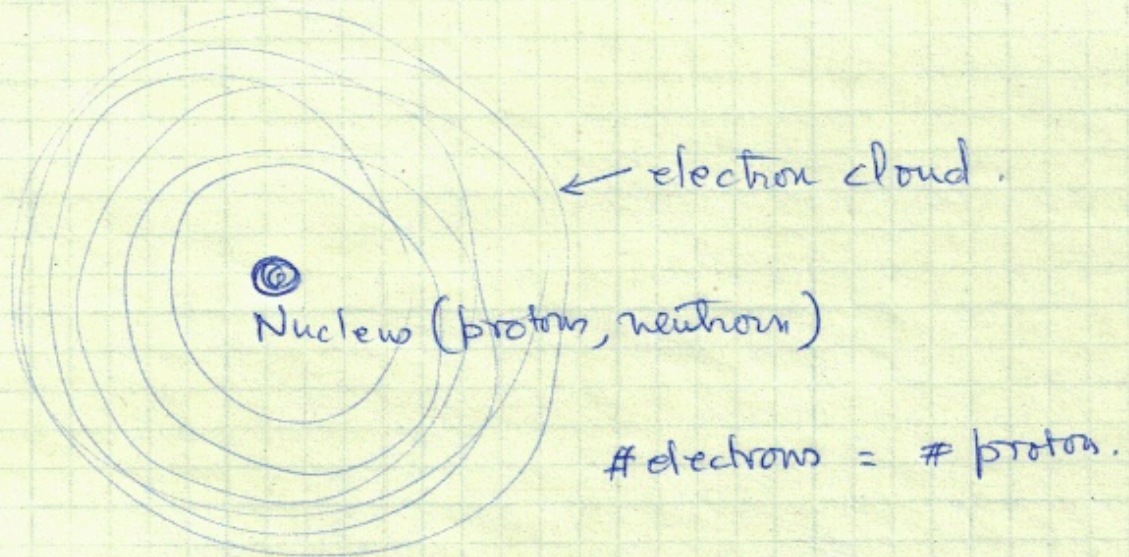 ← electron cloud.
Nucleus (protons, neutrons)
#electrons = # protons.